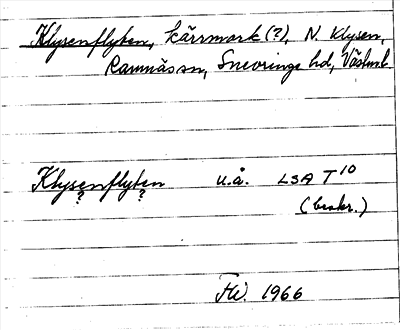 Klysenflyten, kärrmark (?), N. Klysen,
Ramnäs sn, Snevringe hd, Västml.
Klysenflyten u.å. LSA T10
? ? (beskr.)
HW. 1966